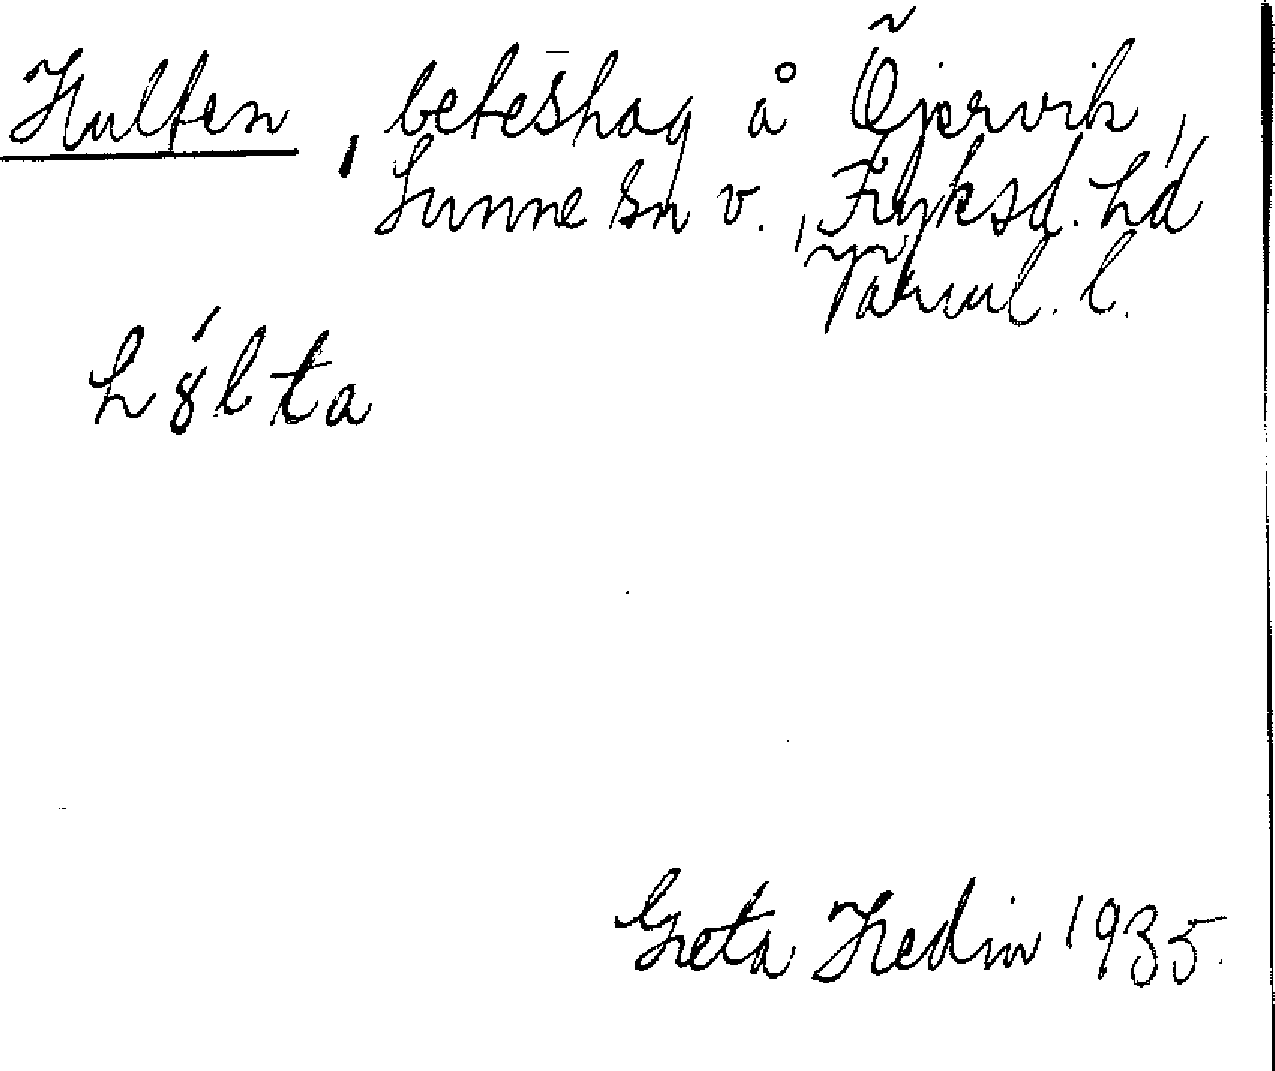 Hulten, beteshag å Öjervik,
Sunne sn v., Fryksd. hd
Värml. l.
hȣ́lta
Greta Hedin 1935.